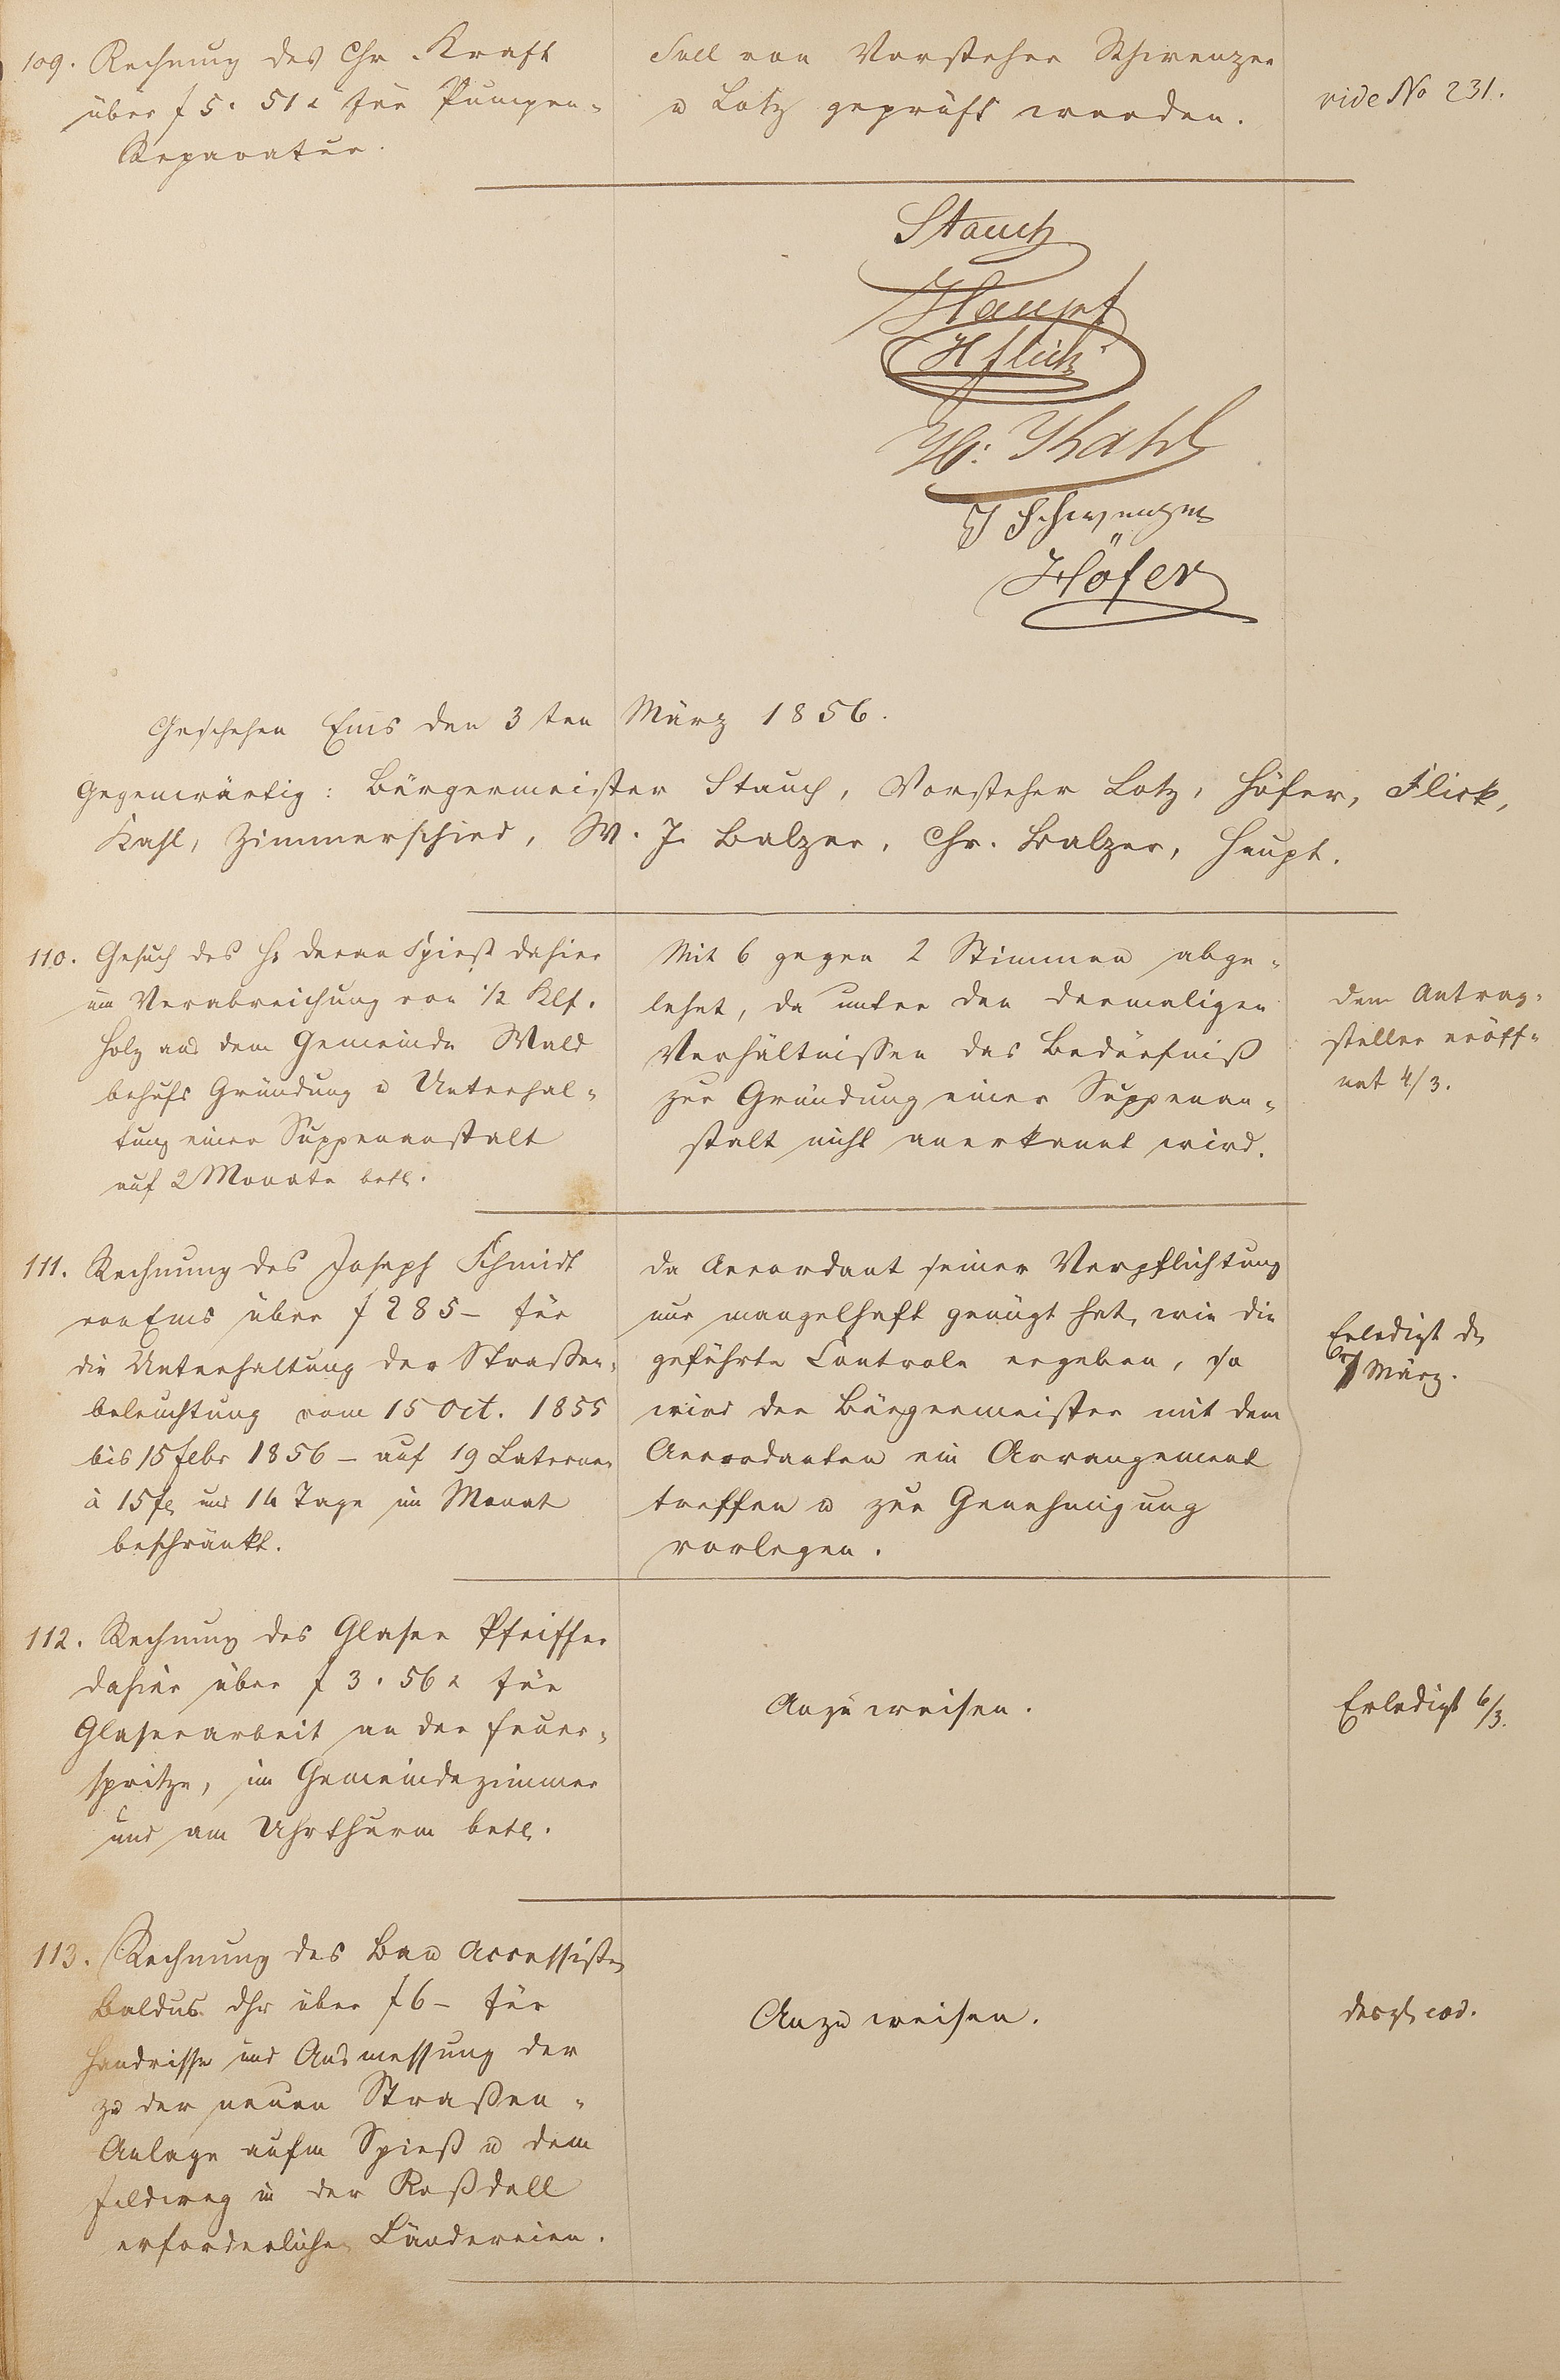 109. Rechnung des Chr. Kraft
über f 5. 51 x für Pumpen-
Reparatur.
Soll von Vorsteher Schwenzer
u Lotz geprüft werden.
vide No 231.
Stauch
Haupt
H Flick
H: Kahl
J Schwenzer
Höfer
Geschehen Ems den 3ten März 1856.
Gegenwärtig: Bürgermeister Stauch, Vorsteher Lotz, Höfer, Flick,
Kahl, Zimmerschied, W. J. Balzer, Chr. Balzer, Haupt.
110. Gesuch des H. Spieß dahier
um Verabreichung von 1/2 Klf.
Holz aus dem Gemeinde Wald
behufs Gründung u Unterhal-
tung einer Suppenanstalt
auf 2 Monate betr.
Mit 6 gegen 2 Stimmen abge-
lehnt, da unter den dermaligen
Verhältnissen das Bedürfniß
zur Gründung einer Suppenan-
stalt nicht anerkannt wird.
dem Antrag-
steller eröff-
net 4/3.
111. Rechnung des Joseph Schmidt
von Ems über f 285 – für
die Unterhaltung der Straßen-
beleuchtung vom 15 Oct. 1855
bis 15 Febr 1856 – auf 19 Laternen
à 15 fl und 14 Tage im Monat
beschränkt.
Da Accordant seiner Verpflichtung
nur mangelhaft genügt hat, wie die
geführte Controle ergeben, so
wird der Bürgermeister mit dem
Accordanten ein Arrangement
treffen u zur Genehmigung
vorlegen.
Erledigt d.
7 März.
112. Rechnung des Glaser Pfeiffer
dahier über f 3. 56 x für
Glaserarbeit an der Feuer-
spritze, im Gemeindezimmer
und am Uhrthurm betr.
Anzuweisen.
Erledigt 6/3.
113. Rechnung des Bau Accessisten
Baldus dhr über f 6 – für
Handrisse und Ausmessung der
zu der neuen Straßen-
Anlage aufm Spieß u dem
Feldweg in der Roßdell
erforderlichen Ländereien.
Anzuweisen.
desgl. eod.